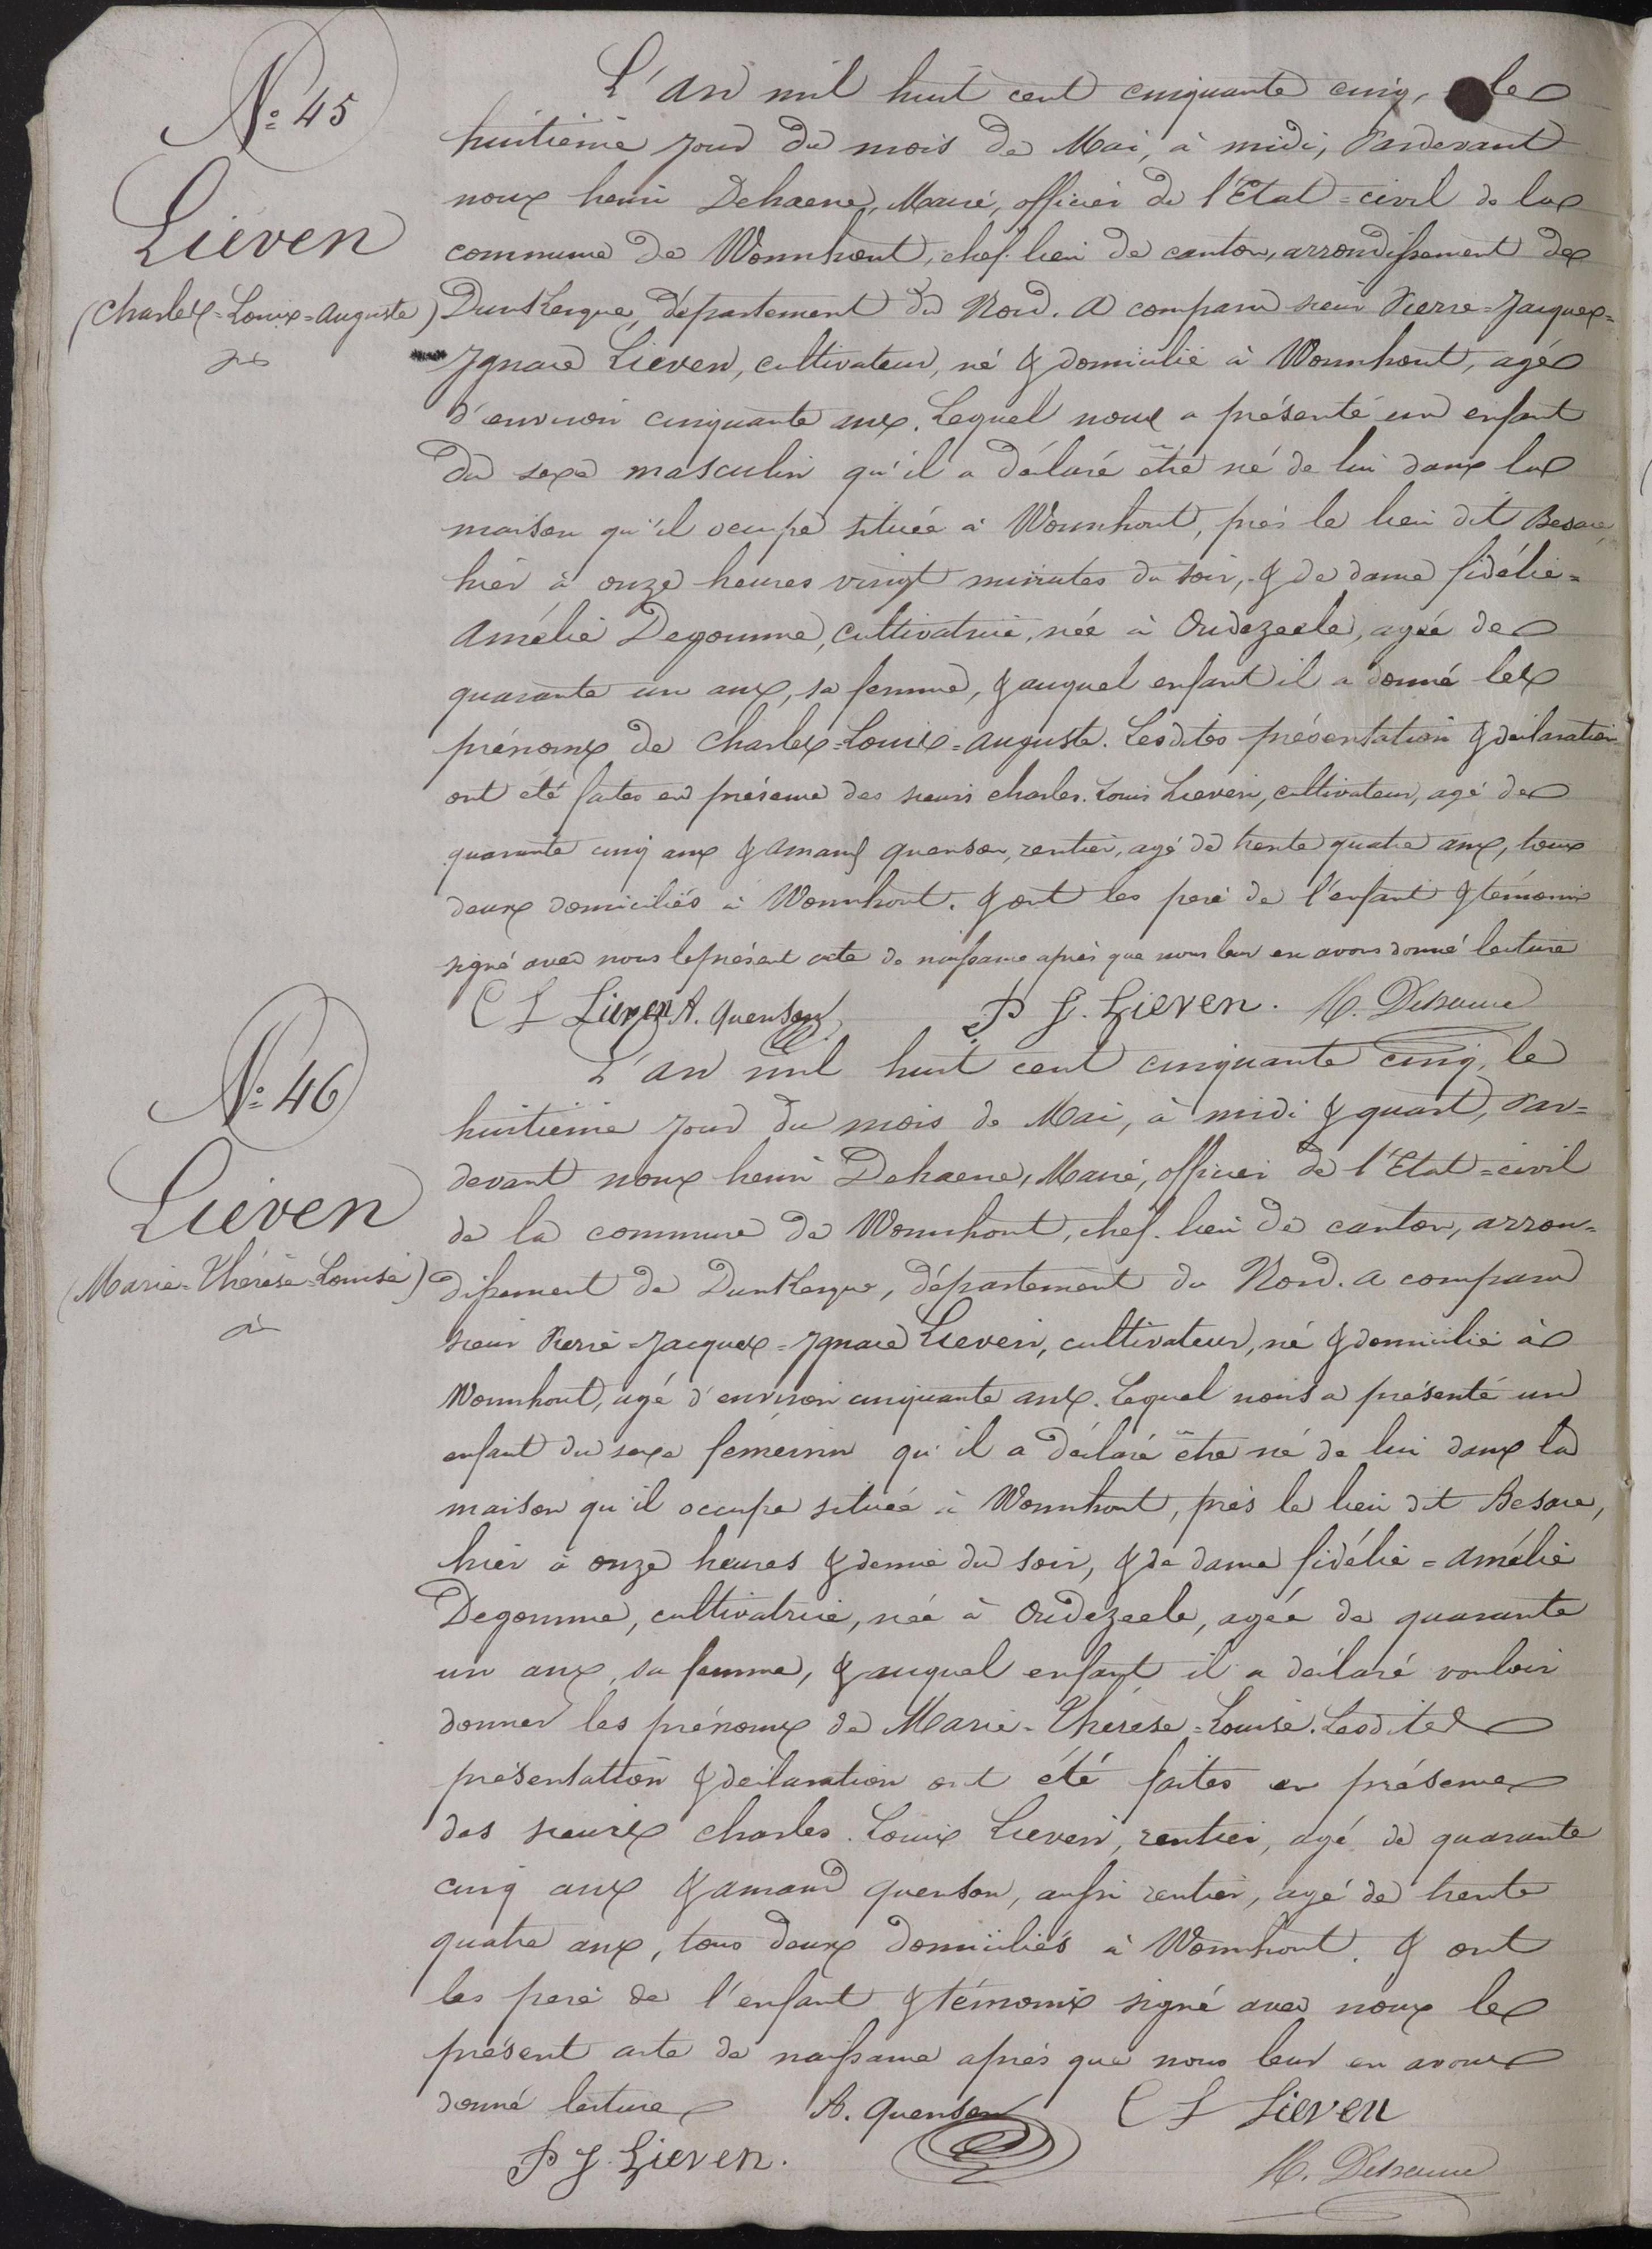 N.º 45
Lieven
(Charles=Louis=Auguste)
L'an mil huit cent cinquante cinq, le
huitième jour du mois de Mai, à midi, Pardevant
nous henri Dehaene, Maire, officier de l'Etat=civil de la
commune de Wormhout, chef-lieu de canton, arrondissement de
Dunkerque, département du Nord. A comparu sieur Pierre=Jacques=
Ignace Lieven, cultivateur, né & domicilié à Wormhout, agé
d'environ cinquante ans. Lequel nous a présenté un enfant
du sexe masculin qu'il a déclaré être né de lui dans la
maison qu'il occupe située à Wormhout, près le lieu dit Besace,
hier à onze heures vingt minutes du soir, & de dame fidélie=
Amélie Degomme, cultivatrice, née à Oudezeele, agée de
quarante un ans, sa femme, & auquel enfant il a donné les
prénoms de Charles=Louis=Auguste. Lesdites présentation & déclaration
ont été faites en présence des sieurs Charles-Louis Lieven, cultivateur, agé de
quarante cinq ans & Amand Quenson, rentier, agé de trente quatre ans, tous
deux domiciliés à Wormhout. & ont les père de l'enfant & témoins
signé avec nous le présent acte de naissance après que nous leur en avons donné lecture
C L Lieven A. Quenson P J. Lieven. H. Dehaene
N.º 46
Lieven
(Marie=Thérèse=Louise)
L'an mil huit cent cinquante cinq, le
huitième jour du mois de Mai, à midi & quart, Par=
devant nous henri Dehaene, Maire, officier de l'Etat=civil
de la commune de Wormhout, chef-lieu de canton, arron=
dissement de Dunkerque, département du Nord. A comparu
sieur Pierre=Jacques=Ignace Lieven, cultivateur, né & domicilié à
Wormhout, agé d'environ cinquante ans. Lequel nous a présenté un
enfant du sexe féminin qu'il a déclaré être né de lui dans la
maison qu'il occupe située à Wormhout, près le lieu dit Besace,
hier à onze heures & demie du soir, & de dame fidélie=Amélie
Degomme, cultivatrice, née à Oudezeele, agée de quarante
un ans, sa femme, & auquel enfant il a déclaré vouloir
donner les prénoms de Marie=Thérèse=Louise. Lesdites
présentation & déclaration ont été faites en présence
des sieurs Charles-Louis Lieven, rentier, agé de quarante
cinq ans & Amand Quenson, aussi rentier, agé de trente
quatre ans, tous deux domiciliés à Wormhout. & ont
les père de l'enfant & témoins signé avec nous le
présent acte de naissance après que nous leur en avons
donné lecture A. Quenson C L Lieven
P J. Lieven. H. Dehaene